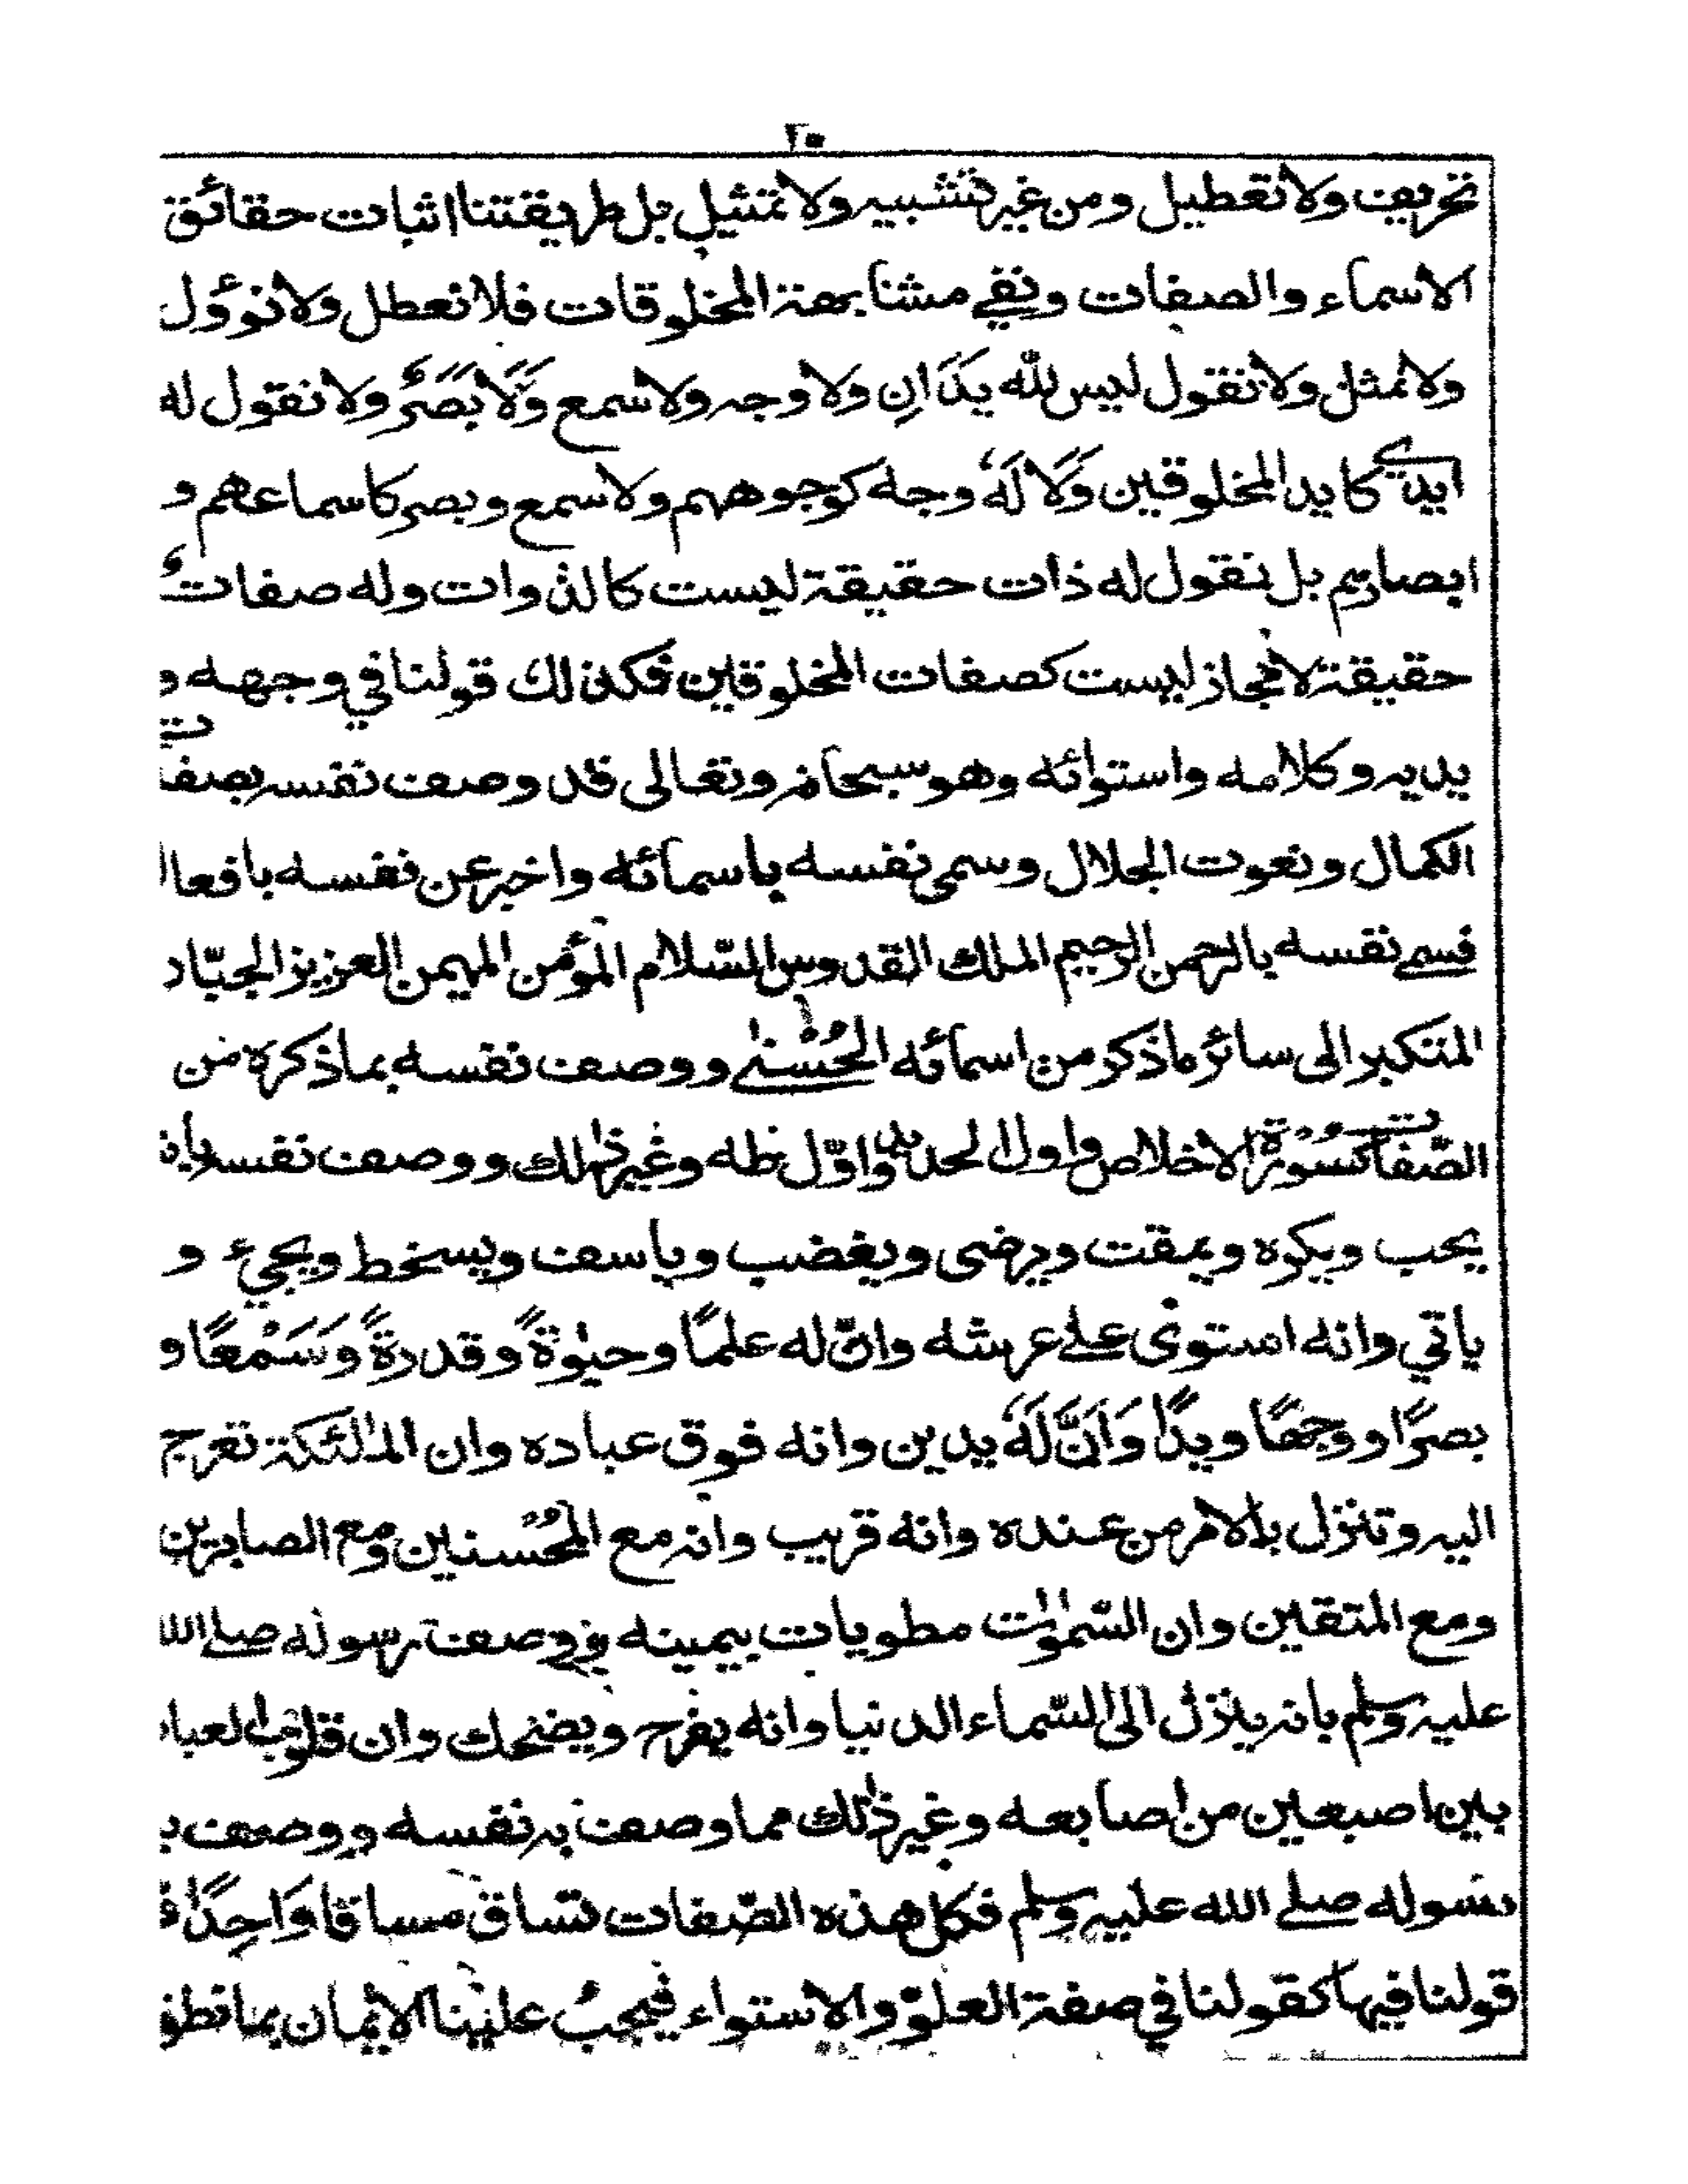 ٢٥
تحريف ولا تعطيل ومن غير تشبيه ولا تمثيل بل طريقتنا اثبات حقائق
الاسماء والصفات ونفي مشابهة المخلوقات فلا نعطل ولا نوؤل
ولا نمثل ولا نقول ليس لله يَدَانِ ولا وجه ولا سمع وَلَا بَصَرٌ ولا نقول له
ايدي كايد المخلوقين وَلَا لَهٗ وجه كوجوههم ولا سمع وبصر كاسماعهم و
ابصارهم بل نقول له ذات حقيقة ليست كالذوات وله صفاتٌ
حقيقة لا مجاز ليست كصفات المخلوقين فكذلك قولنا في وجهه و
يديه وكلامه واستوائه وهو سبحانه وتعالى قد وصف نفسه بصفات
الكمال ونعوت الجلال وسمى نفسه باسمائه واخبر عن نفسه بافعا
فسمى نفسه بالرحمن الرحيم الملك القدوس السّلام المؤمن المهيمن العزيز الجبّار
المتكبر الى سائر ما ذكر من اسمائه الحُسْنٰى ووصف نفسه بما ذكره من
الصّفات كسُوْرة الاخلاص واول الحديد واوّل طه وغير ذٰلك ووصف نفسه بان
يحب ويكره ويمقت ويرضى ويغضب وياسف ويسخط ويجيء و
ياتي وانه استوى على عرشه وانّ له علمًا وحيٰوةً وقدرةً وَسَمْعًا و
بصرًا ووجهًا ويدًا وَاَنَّ لَهٗ يدين وانه فوق عباده وان الملٰئكة تعرج
اليه وتنزل بالامر من عنده وانه قريب وانه مع المُحْسنين ومع الصابرين
ومع المتقين وان السّمٰوٰت مطويات بيمينه ووصف رسوله صلى الله
عليه وسلم بانه ينزل الى السّماء الدنيا وانه يفرح ويضحك وان قلوب العباد
بين اصبعين من اصابعه وغير ذٰلك مما وصف به نفسه ووصف به
رسوله صلى الله عليه وسلم فكل هذه الصّفات تساق مساقا وَاحِدًا
قولنا فيها كقولنا في صفة العلوّ والاستواء فيجبُ علينا الايمان بما نطق